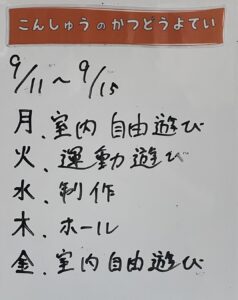 こんしゅうのかつどうよてい
9/11～9/15
月、室内自由遊び
火、運動遊び
水、制作
木、ホール
金、室内自由遊び